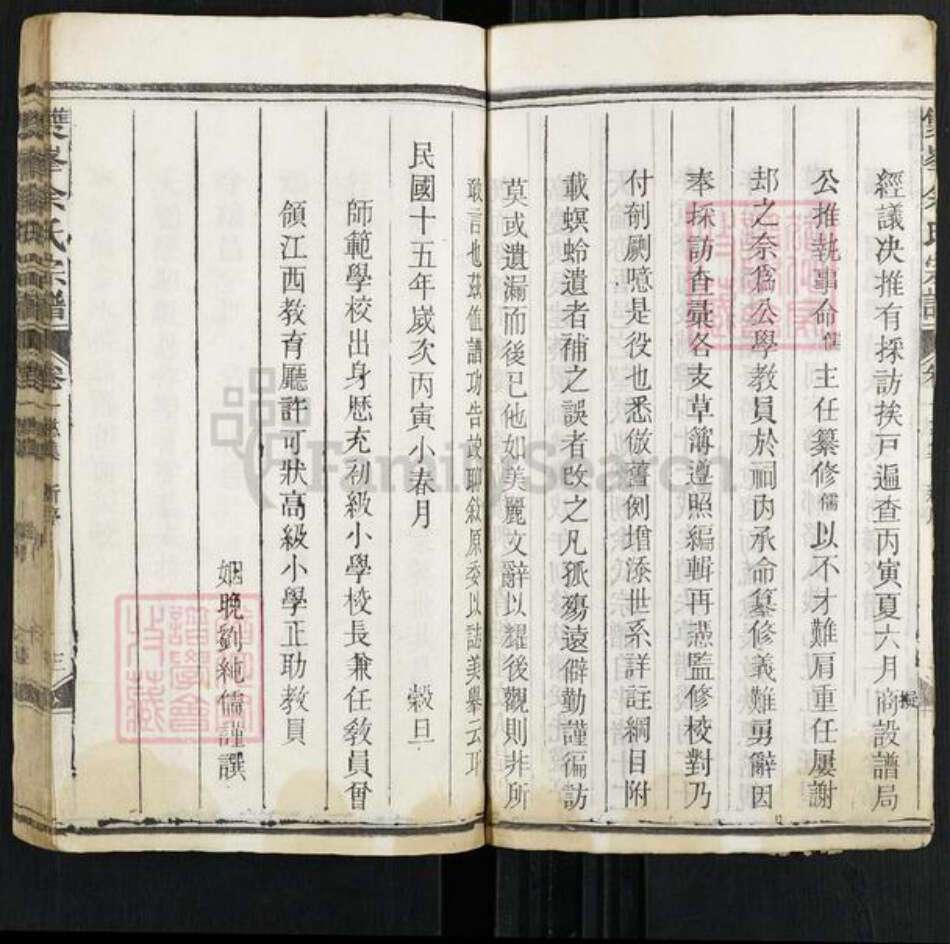 經議决推有採訪挨戸遍查丙寅夏六月商設譜局擬
公推執事命儒主任纂修儒以不才難肩重任屢謝
却之奈爲公學教員於祠内承命纂修義難勇辭因
奉採訪查彙各支草簿遵照編輯再慿監修校對乃
付剞劂噫是役也悉倣舊例增添世系詳註綱目附
載螟蛉遺者補之誤者改之凡孤殤遠僻勤謹徧訪
莫或遺漏而後已他如美麗文辭以耀後觀則非所
敢言也茲值譜功告竣聊敘原委以誌美舉云耳
民國十五年歲次丙寅小春月 穀旦
師範學校出身歷充初級小學校長兼任教員曾
領江西教育廳許可狀高級小學正助教員
姻晚劉純儒謹譔
雙峯余氏宗譜 卷一 新序 三
FamilySearch